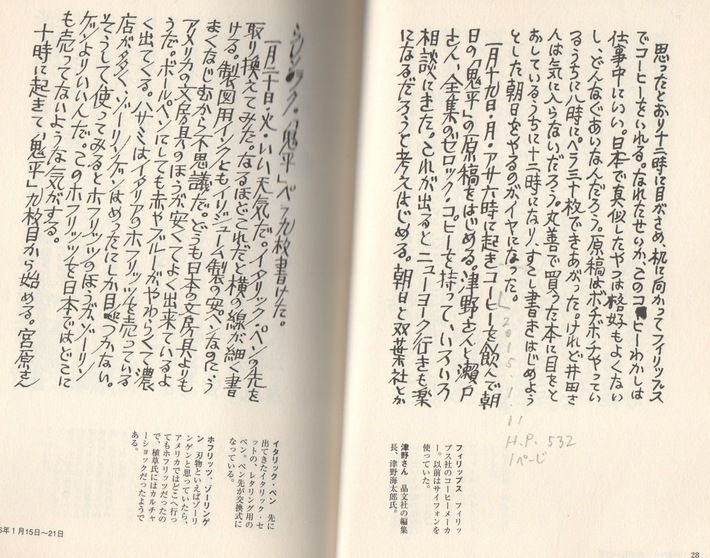 思ったとおり十二時に目がさめ、机に向かってフィリップス
でコーヒーをいれる。なれたせいか、このコーヒーわかしは
仕事中にいい。日本で真似したやつは格好もよくない
し、どんなぐあいなんだろう。原稿はボチボチやってい
るうちに八時にペラ三十枚できあがった。けれど井田さ
んは気に入らないだろう。丸善で買った本に目をと
おしているうちに十二時になり、すこし書きはじめよう
とした朝日をやるのがイヤになった。
一月十九日・月・アサ六時に起きコーヒーを飲んで朝
日の「鬼平」の原稿をはじめる。津野さんと瀬戸
さん、全集のゼロック・コピーを持って、いろいろ
相談にきた。これが出るとニューヨーク行きも楽
になるだろうと考えはじめる。朝日と双葉社とか
L
2015.1.11
H.P. 532
1ページ
フィリップス フィリッ
プス社のコーヒーメーカ
ー。以前はサイフォンを
使っていた。
津野さん 晶文社の編集
長、津野海太郎氏。
28
「鬼平」ペラ九枚書けた。
一月二十日・火・いい天気だ。イタリック・ペンの先を
取り換えてみた。なるほどこれだと横の線が細く書
ける。製図用インクともイリジューム製の安ペンなのに、う
まくなじむから不思議だ。どうも日本の文房具よりも
アメリカの文房具のほうが安くてよく出来ているよ
うだ。ボールペンにしても赤やブルーがやわらくて濃
く出てくる。ハサミはイタリアのホフリッツを売っている
店が多く、ゾーリンゲンはめったにしか目につかない。
そうして使ってみるとホフリッツのほうがゾーリン
ゲンよりいいんだ。このホフリッツを日本ではどこに
も売ってないような気がする。
十時に起きて、「鬼平」九枚目から始める。宮原さん
イタリック・ペン 先に
出てきたイタリック・セ
ットの、レタリング用の
ペン。ペン先が交換式に
なっている。
ホフリッツ、ゾーリンゲ
ン 刃物といえばゾーリ
ンゲンと思っていたら、
アメリカではどこへ行っ
てもホフリッツだったの
で、植草氏にはカルチャ
ーショックだったようで
ある。
6年1月15日〜21日